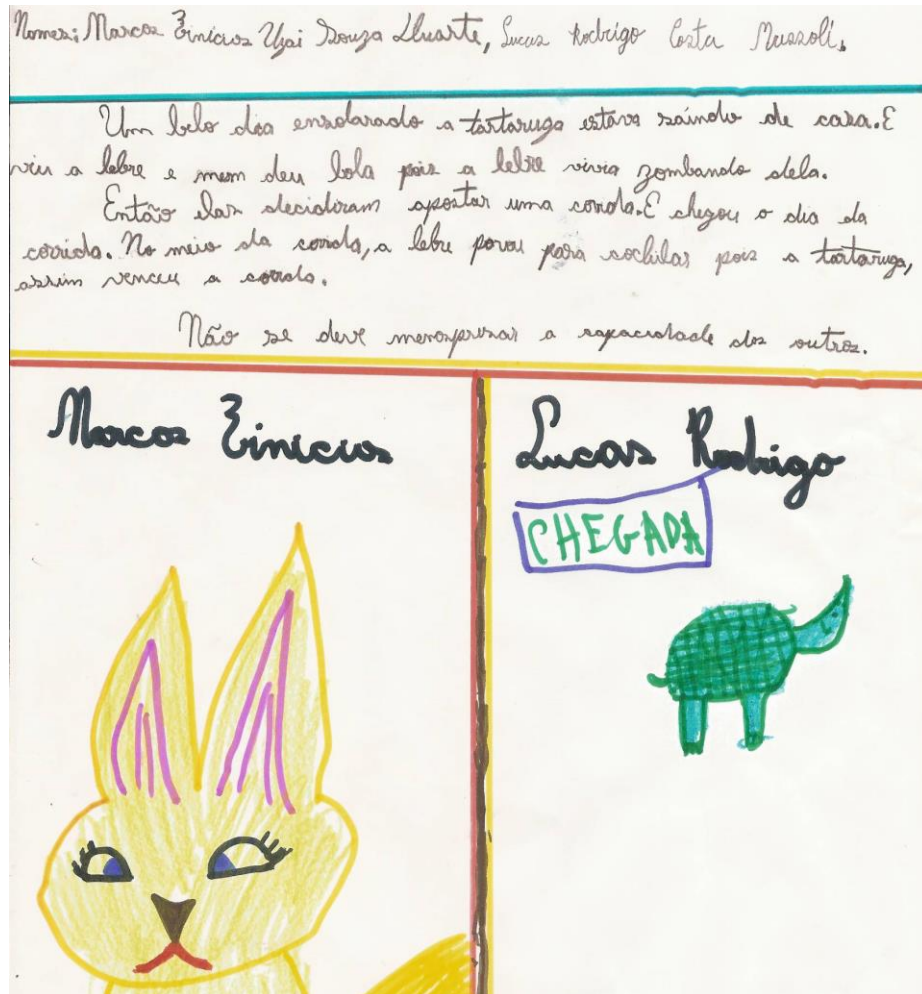 Nomes: Marcos Vinicius Uzai Souza Duarte, Lucas Rodrigo Costa Mussoli.
Um belo dia ensolarado a tartaruga estava saindo de casa. E
viu a lebre e mem deu bola pois a lebre vivia zombando dela.
Então elas decidiram apostar uma corrida. E chegou o dia da
corrida. No meio da corrida, a lebre parou para cochilar pois a tartaruga,
assim venceu a corrida.
Não se deve menosprezar a capacidade dos outros.
Marcos Vinicius
Lucas Rodrigo
CHEGADA